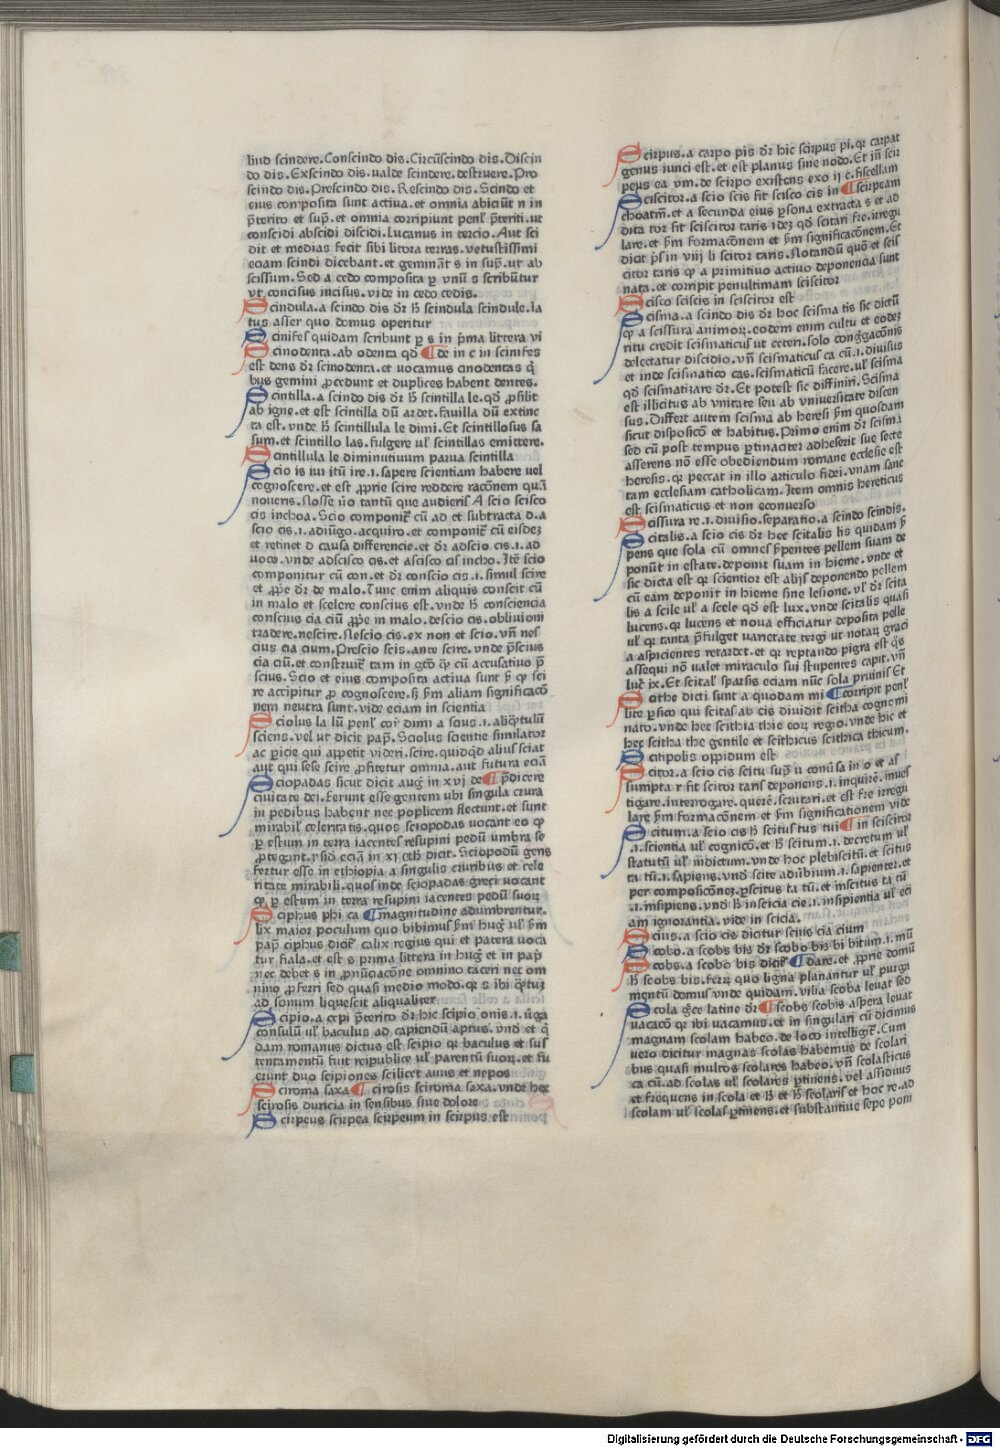 liud scindere. Conscindo dis. Circūscindo dis. Discin
do dis. Exscindo dis. valde scindere. destruere. Pro
scindo dis. Prescindo dis. Rescindo dis. Scindo et
eius composita sunt actiua. et omnia abiciūt n in
p̄terito et sup̄. et omnia corripiunt penl̄ p̄teriti. ut
conscidi abscidi discidi. Lucanus in tercio. Aut sci
dit et medias fecit sibi litora terras. vetustissimi
eciam scindi dicebant. et gemināt s in sup̄. ut ab
scissum. Sed a cedo composita ꝑ vnū s scribūtur
vt concisus incisus. vide in cedo cedis.
Scindula. a scindo dis dr̄ h̄ scindula scindule. la
tus asser quo domus operitur
Scinifes quidam scribunt ꝑ s in p̄ma littera vi
Scinodenta. ab odenta qd̄ ¶ de in c in scinifes
est dens dr̄ scinodenta. et uocamus cinodentas q̄
bus gemini ꝓcedunt et duplices habent dentes.
Scintilla. a scindo dis dr̄ h̄ scintilla le. qd̄ ꝓsilit
ab igne. et est scintilla dū ardet. fauilla dū extinc
ta est. vnde h̄ scintillula le dimi. Et scintillosus sa
sum. et scintillo las. fulgere ul̄ scintillas emittere.
Scintillula le diminutiuum parua scintilla
Scio is iui itū ire. i. sapere scientiam habere uel
cognoscere. et est ꝓprie scire reddere racōnem quā
noueris. Nosse u̅o tantū que audieris A scio scisco
cis inchoa. Scio componit̄ cū ad et subtracta d. a
scio cis. i. adiūgo. acquiro. et componit̄ cū eisdez
et retinet d causa differencie. et dr̄ adscio cis. i. ad
uoco. vnde adscisco cis. et ascisco cis incho. Itē scio
componitur cū con. et dr̄ conscio cis. i. simul scire
et ꝓp̄e dr̄ de malo. Tunc enim aliquis conscit cū
in malo et scelere conscius est. vnde h̄ consciencia
conscius cia ciū ꝓp̄e in malo. descio cis. obliuioni
tradere. nescire. Nescio cis. ex non et scio. vn̄ nes
cius cia cium. Prescio scis. ante scire. vnde p̄scius
cia ciū. et construit̄ tam in gt̄o qꝫ cū accusatiuo p̄
scius. Scio et eius composita actiua sunt p̄ ꝙ sci
re accipitur ꝓ cognoscere. s̄ p̄m aliam significacō
nem neutra sunt. vide eciam in scientia
Sciolus la lū penl̄ cor̄ dimi a scius. i. aliq̄tulū
sciens. vel ut dicit pap̄. Sciolus scientie similator
ac ꝑicie qui appetit videri. scire. quidqd̄ alius sciat
aut qui sese scire ꝓfitetur omnia. aut futura eciā
Sciopadas sicut dicit auḡ in xvj de ¶ p̄dicere
ciuitate dei. ferunt esse gentem ubi singula crura
in pedibus habent nec poplicem flectunt. et sunt
mirabil̄ celeritatis. quos sciopodas uocant eo ꝙ
ꝑ estum in terra iacentes resupini pedū umbra se
ꝓtegant. ysid̄ eciā in xj eth̄ dicit. Sciopodū gens
fertur esse in ethiopia a singulis cruribus et cele
ritate mirabili. quos inde sciopadas greci uocant
ꝙ ꝑ estum in terra resupini iacentes pedū suoꝝ
Sciphus phi ca ¶ magnitudine adumbrentur.
lix maior poculum quo bibimus p̄m huḡ ul̄ p̄m
pap̄ ciphus dicit̄ calix regius qui et patera uoca
tur fiala. et est s prima littera in huḡ et in pap̄
nec debet s in ꝓnūciacōne omnino taceri nec om
nino ꝓferri sed quasi medio modo. qꝛ s ibi q̄ntuꝫ
ad sonum liquescit aliqualiter
Scipio. a cepi p̄terito dr̄ hic scipio onis. i. u̅ga
consulū ul̄ baculus ad capiendū aptus. vnd̄ et q̄
dam romanus dictus est scipio qꝛ baculus et sus
tentamentū fuit reipublice ul̄ parentū suoꝝ. et fu
erunt duo scipiones scilicet auus et nepos
Sciroma saxa ¶ cirosis sciroma saxa. vnde hec
scirosis duricia in sensibus siue dolore
Scirpeus scirpea scirpeum in scirpus est
Scirpus. a carpo pis dr̄ hic scirpus pi. qꝛ carpat
genus iunci est. et est planus sine nodo. Et in̄ scir
peus ea vm. de scirpo existens exo ij c. fiscellam
Sciscitor. a scio scis fit scisco cis in ¶ scirpeam
choatm̄. et a secunda eius ꝑsona extracta s et ad
dita tor fit sciscitor taris idez qd̄ scitari fr̄e. irregu
lare. et p̄m formacōnem et p̄m significacōnem. Et
dicit p̄s in viij li scitor taris. Notandū quō et scis
citor taris ꝙ a primitiuo actiuo deponencia sunt
nata. et corripit penultimam sciscitor
Scisco sciscis in sciscitor est
Scisma. a scindo dis dr̄ hoc scisma tis sic dictū
ꝙ a scissura animoꝝ. eodem enim cultu et eodez
ritu credit scismaticus ut ceteri. solo congḡacōnis
delectatur discidio. vn̄ scismaticus ca cū. i. diuisus
et inde scismatico cas. scismaticū facere. ul̄ scisma
qd̄ scismatizare dr̄. Et potest sic diffiniri. Scisma
est illicitus ab vnitate seu ab vniuersitate discen
sus. Differt autem scisma ab heresi p̄m quosdam
sicut disposicō et habitus. Primo enim dr̄ scisma
sed cū post tempus ꝑtinaciter adheserit sue secte
asserens nō esse obediendum romane ecclesie est
heresis. qꝛ peccat in illo articulo fidei. vnam sanc
tam ecclesiam catholicam. Item omnis hereticus
est scismaticus et non econuerso
Scissura re. i. diuisio. separatio. a scindo scindis.
Scitalis. a scio cis dr̄ hec scitalis lis quidam p̄
pens que sola cū omnes p̄pentes pellem suam de
ponūt in estate. deponit suam in hieme. vnde et
sic dicta est qꝛ scientior est alijs deponendo pellem
cū eam deponit in hieme sine lesione. ul̄ dr̄ scita
lis a scile ul̄ a scele qd̄ est lux. vnde scitalis quasi
lucens. qꝛ lucens et noua efficiatur deposita pelle
ul̄ qꝛ tanta p̄fulget uarietate tergi ut notaꝝ graci
a aspicientes retardet. et qꝛ reptando pigra est q̄s
assequi nō valet miraculo sui stupentes capit. vn̄
luc̄ ix. Et scital̄ sparsis eciam nūc sola pruinis Et
Scithe dicti sunt a quodam mi ¶ corripit penl̄
lite ꝑsico qui scitas ab cis diuidit scitha cognomi
nato. vnde hec scithia thie eoꝝ regio. vnde hic et
hec scitha the gentile et scithicus scithica thicum.
Scitipolis oppidum est
Scitor. a scio cis scitu sup̄ u conu̅sa in o et as
sumpta r fit scitor taris deponens. i. inquirē. inues
tigare. interrogare. querē. scrutari. et est fr̄e irregu
lare p̄m formacōnem et p̄m significationem vide
Scitum. a scio cis h̄ scitus tus tui ¶ in sciscitor
. i. scientia ul̄ cognicō. et h̄ scitum. i. decretum ul̄
statutū ul̄ indictum. vnde hoc plebiscitū. et scitus
ta tū. i. sapiens. vnd̄ scite adu̅bium. i. sapienter. et
per composicōnez. ꝑscitus ta tū. et inscitus ta cū
. i. insipiens. vnd̄ h̄ inscicia cie. i. insipientia ul̄ eci
am ignorantia. vide in scicia.
Scius. a scio cis dicitur scius cia cium
Scobo. a scobs bis dr̄ scobo bis bi bitum. i. mū
Scobs. a scobo bis dicit̄ ¶ dare. et ꝓprie domū
h̄ scobs bis. ferꝝ quo ligna planantur ul̄ purga
mentū domus vnde quidam. vilia scoba leuat sed
Scola gr̄ce latine dr̄ ¶ scobs scobis aspera leuat
vacacō qꝛ ibi uacamus. et in singulari cū dicimus
magnam scolam habeo. de loco intelligit̄. Cum
uero dicitur magnas scolas habemus de scolari
bus quasi multos scolares habeo. vn̄ scolasticus
ca cū. ad scolas ul̄ scolares ꝑtinens. vel assiduus
et frequens in scola et h̄ et h̄ scolaris et hoc re. ad
scolam ul̄ scolas ꝑtinens. et substantiue sepe poni
Digitalisierung gefördert durch die Deutsche Forschungsgemeinschaft - DFG